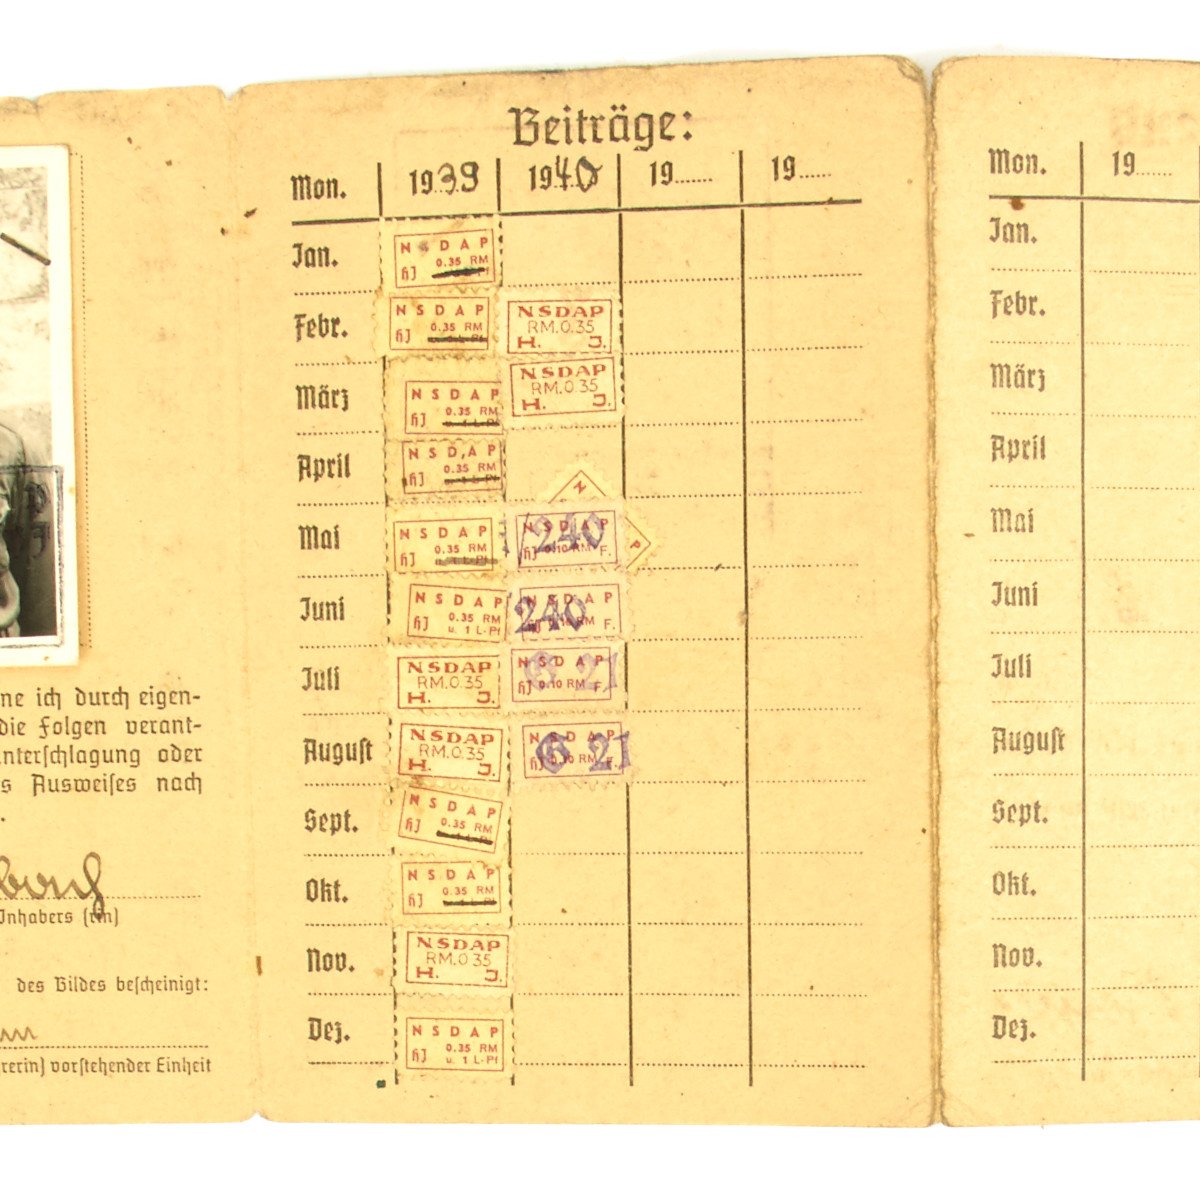 ne ich durch eigen-
die Folgen verant-
nterschlagung oder
s Ausweises nach
.
Inhabers (rin)
des Bildes bescheinigt:
rerin) vorstehender Einheit
Beiträge:
Mon. 1939 1940 19...... 19......
Jan.
NSDAP
HJ 0.35 RM
Febr.
NSDAP
HJ 0.35 RM
NSDAP
RM.0.35
H. J.
März
NSDAP
HJ 0.35 RM
u. 1 L-Pf
NSDAP
RM.0.35
H. J.
April
NSDAP
HJ 0.35 RM
u. 1 L-Pf
N
Mai
NSDAP
HJ 0.35 RM
u. 1 L-Pf
NSDAP
HJ 0.10 RM F.
240
P
Juni
NSDAP
HJ 0.35 RM
u. 1 L-Pf
NSDAP
HJ 0.10 RM F.
240
Juli
NSDAP
RM.0.35
H. J.
NSDAP
HJ 0.10 RM F.
G 21
August
NSDAP
RM.0.35
H. J.
NSDAP
HJ 0.10 RM F.
G 21
Sept.
NSDAP
HJ 0.35 RM
Okt.
NSDAP
HJ 0.35 RM
Nov.
NSDAP
RM.0.35
H. J.
Dez.
NSDAP
HJ 0.35 RM
u. 1 L-Pf
Mon. 19......
Jan.
Febr.
März
April
Mai
Juni
Juli
August
Sept.
Okt.
Nov.
Dez.